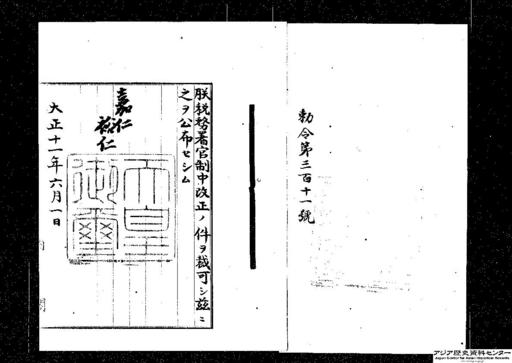 勅令第三百十一號
朕税務署官制中改正ノ件ヲ裁可シ茲ニ
之ヲ公布セシム
嘉仁
裕仁
天皇御璽
大正十一年六月一日
アジア歴史資料センター
Japan Center for Asian Historical Records